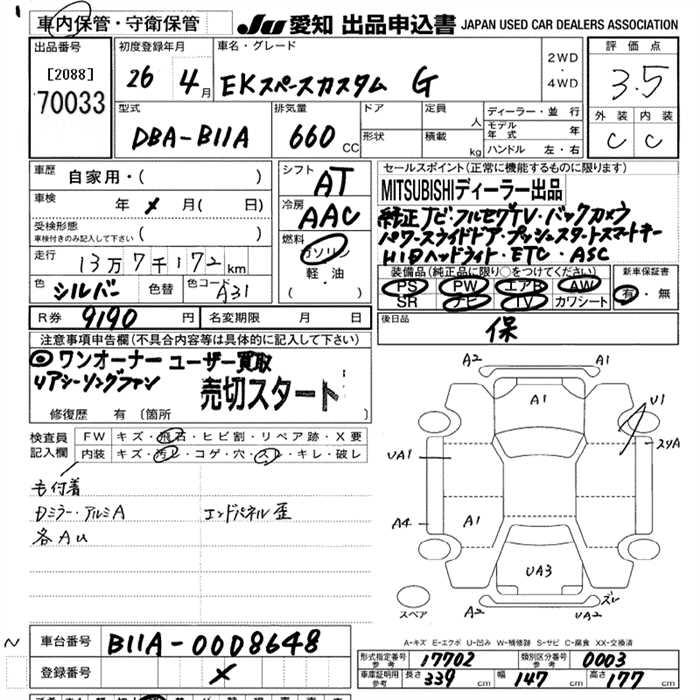 車内保管・守衛保管
JU 愛知 出品申込書 JAPAN USED CAR DEALERS ASSOCIATION
出品番号
[2088]
70033
初度登録年月
26 4月
車名・グレード
EKスペースカスタム G
2WD
・
4WD
評価点
3.5
外装 内装
C C
型式
DBA-B11A
排気量
660 CC
ドア
形状
定員 人
積載 kg
ディーラー・並行
モデル年式 年
ハンドル 左・右
車歴 自家用・( )
車検 年 メ 月( 日)
受検形態
車検付きのみ記入して下さい ( )
走行 13万7千172km
色 シルバー 色替 色コード A31
シフト AT
冷房 AAC
燃料 ガソリン
軽・油
( ・ )
セールスポイント(正常に機能するものに限ります)
MITSUBISHIディーラー出品
純正ナビ・フルセグTV・バックカメラ
パワースライドドア・プッシュスタートスマートキー
HIDヘッドライト・ETC・ASC
装備品(純正品に限り○をつけてください)
PS PW エアB AW
SR ナビ TV カワシート
新車保証書
有・無
R券 9190 円 名変期限 月 日
後日品
保
注意事項申告欄(不具合内容等は具体的に記入して下さい)
◎ワンオーナー ユーザー買取
リアシーリングファン 売切スタート
修復歴 有 〔箇所 〕
検査員記入欄
FW キズ・飛石・ヒビ割・リペア跡・X要
内装 キズ・汚レ・コゲ・穴・スレ・キレ・破レ
も付着
Dミラー・アルミA エンドパネル歪
各AU
A2 A1
A1
U1
スリA
UA1
A4 A1
UA3
スペア
A2 UA2 ズレ
A-キズ E-エクボ U-凹み W-補修跡 S-サビ C-腐食 XX-交換済
車台番号 B11A-0008648
登録番号 メ
形式指定番号 参考 17702 類別区分番号 参考 0003
車庫証明用 参考 長さ 339 cm 幅 147 cm 高さ 177 cm